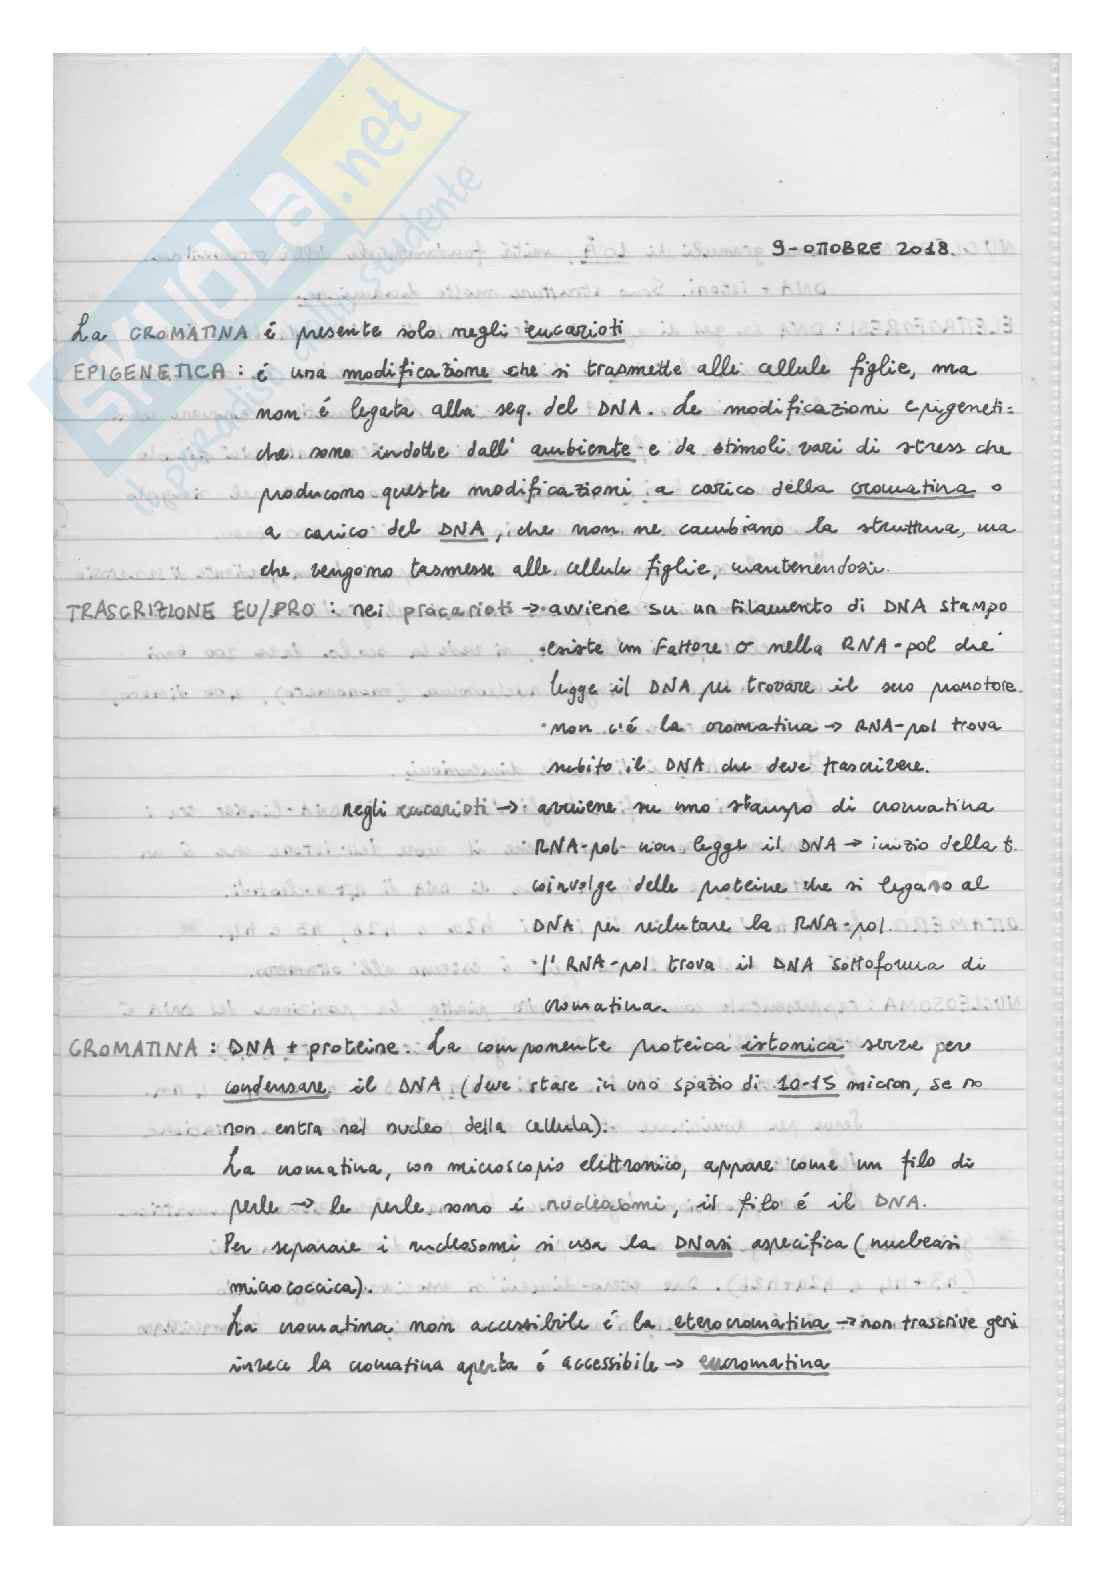 SKUOLA.net
il paradiso dello studente
9-OTTOBRE 2018.
La CROMATINA é presente solo negli eucarioti
EPIGENETICA : é una modificazione che si trasmette alle cellule figlie, ma
non é legata alla seq. del DNA. Le modificazioni epigeneti=
che sono indotte dall' ambiente e da stimoli vari di stress che
producono queste modificazioni a carico della cromatina o
a carico del DNA, che non ne cambiano la struttura, ma
che vengono tasmesse alle cellule figlie, mantenendosi.
TRASCRIZIONE EU/PRO : nei procarioti → · avviene su un filamento di DNA stampo
· esiste un fattore σ nella RNA-pol che
legge il DNA per trovare il suo promotore.
· non c'é la cromatina → RNA-pol trova
subito il DNA che deve trascrivere.
negli eucarioti → · avviene su uno stampo di cromatina
· RNA-pol non legge il DNA → inizio della t.
coinvolge delle proteine che si legano al
DNA per reclutare la RNA-pol.
· l' RNA-pol trova il DNA sottoforma di
cromatina.
CROMATINA : DNA + proteine. La componente proteica istonica serve per
condensare il DNA (deve stare in uno spazio di 10-15 micron, se no
non entra nel nucleo della cellula).
La cromatina, con microscopio elettronico, appare come un filo di
perle → le perle sono i nucleosomi, il filo é il DNA.
Per separare i nucleosomi si usa la DNasi aspecifica (nucleasi
micrococcica).
La cromatina non accessibile é la eterocromatina → non trascrive geni
invece la cromatina aperta é accessibile → eucromatina